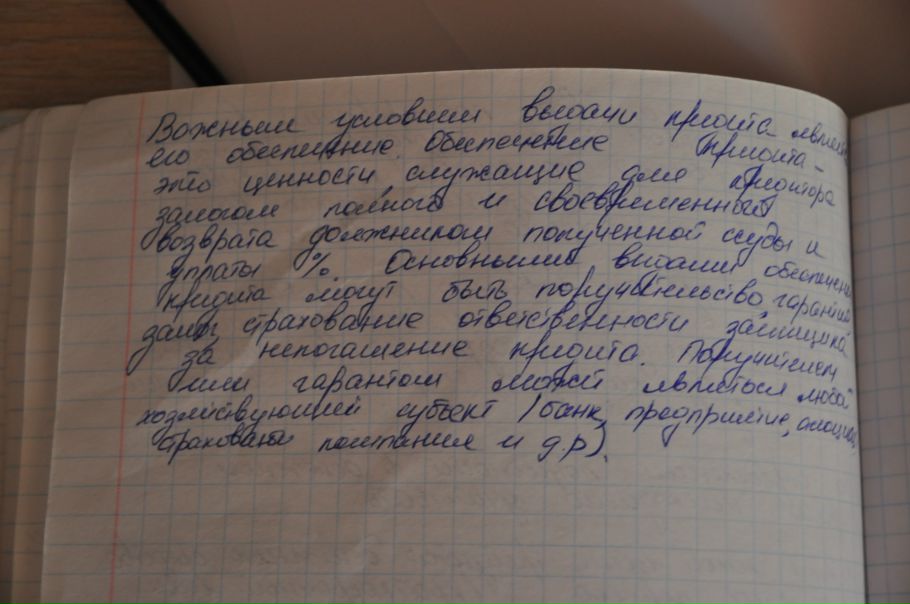 Важным условием выдачи кредита являет
его обеспечение. Обеспечение кредита -
это ценности, служащие для кредитора
залогом полного и своевременный
возврата должником полученной ссуды и
уплаты %. Основными видами обеспечения
кредита могут быть поручительство, гарантия
залог, страхование ответственности заёмщика
за непогашение кредита. Поручителем
или гарантом может являться любой
хозяйствующий субъект (банк, предприятие,
страховая компания и др).